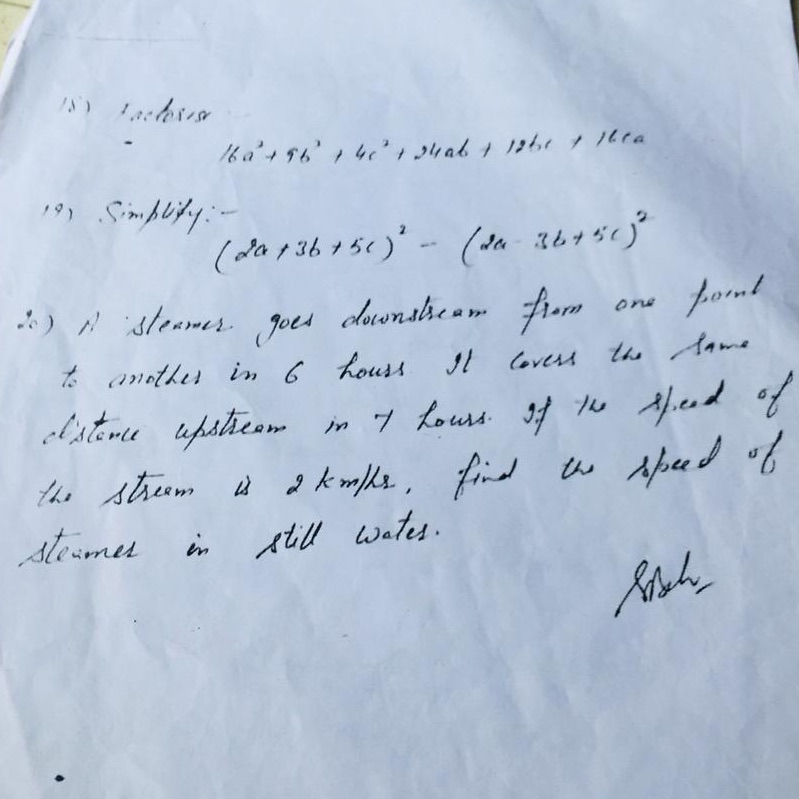 18) Factorise
16a²+9b²+4c²+24ab+12bc+16ca
19) Simplify:-
(2a+3b+5c)² - (2a-3b+5c)²
20) A steamer goes downstream from one point
to another in 6 hours It covers the same
distance upstream in 7 hours. If the speed of
the stream is 2 km/hr, find the speed of
steamer in still water.